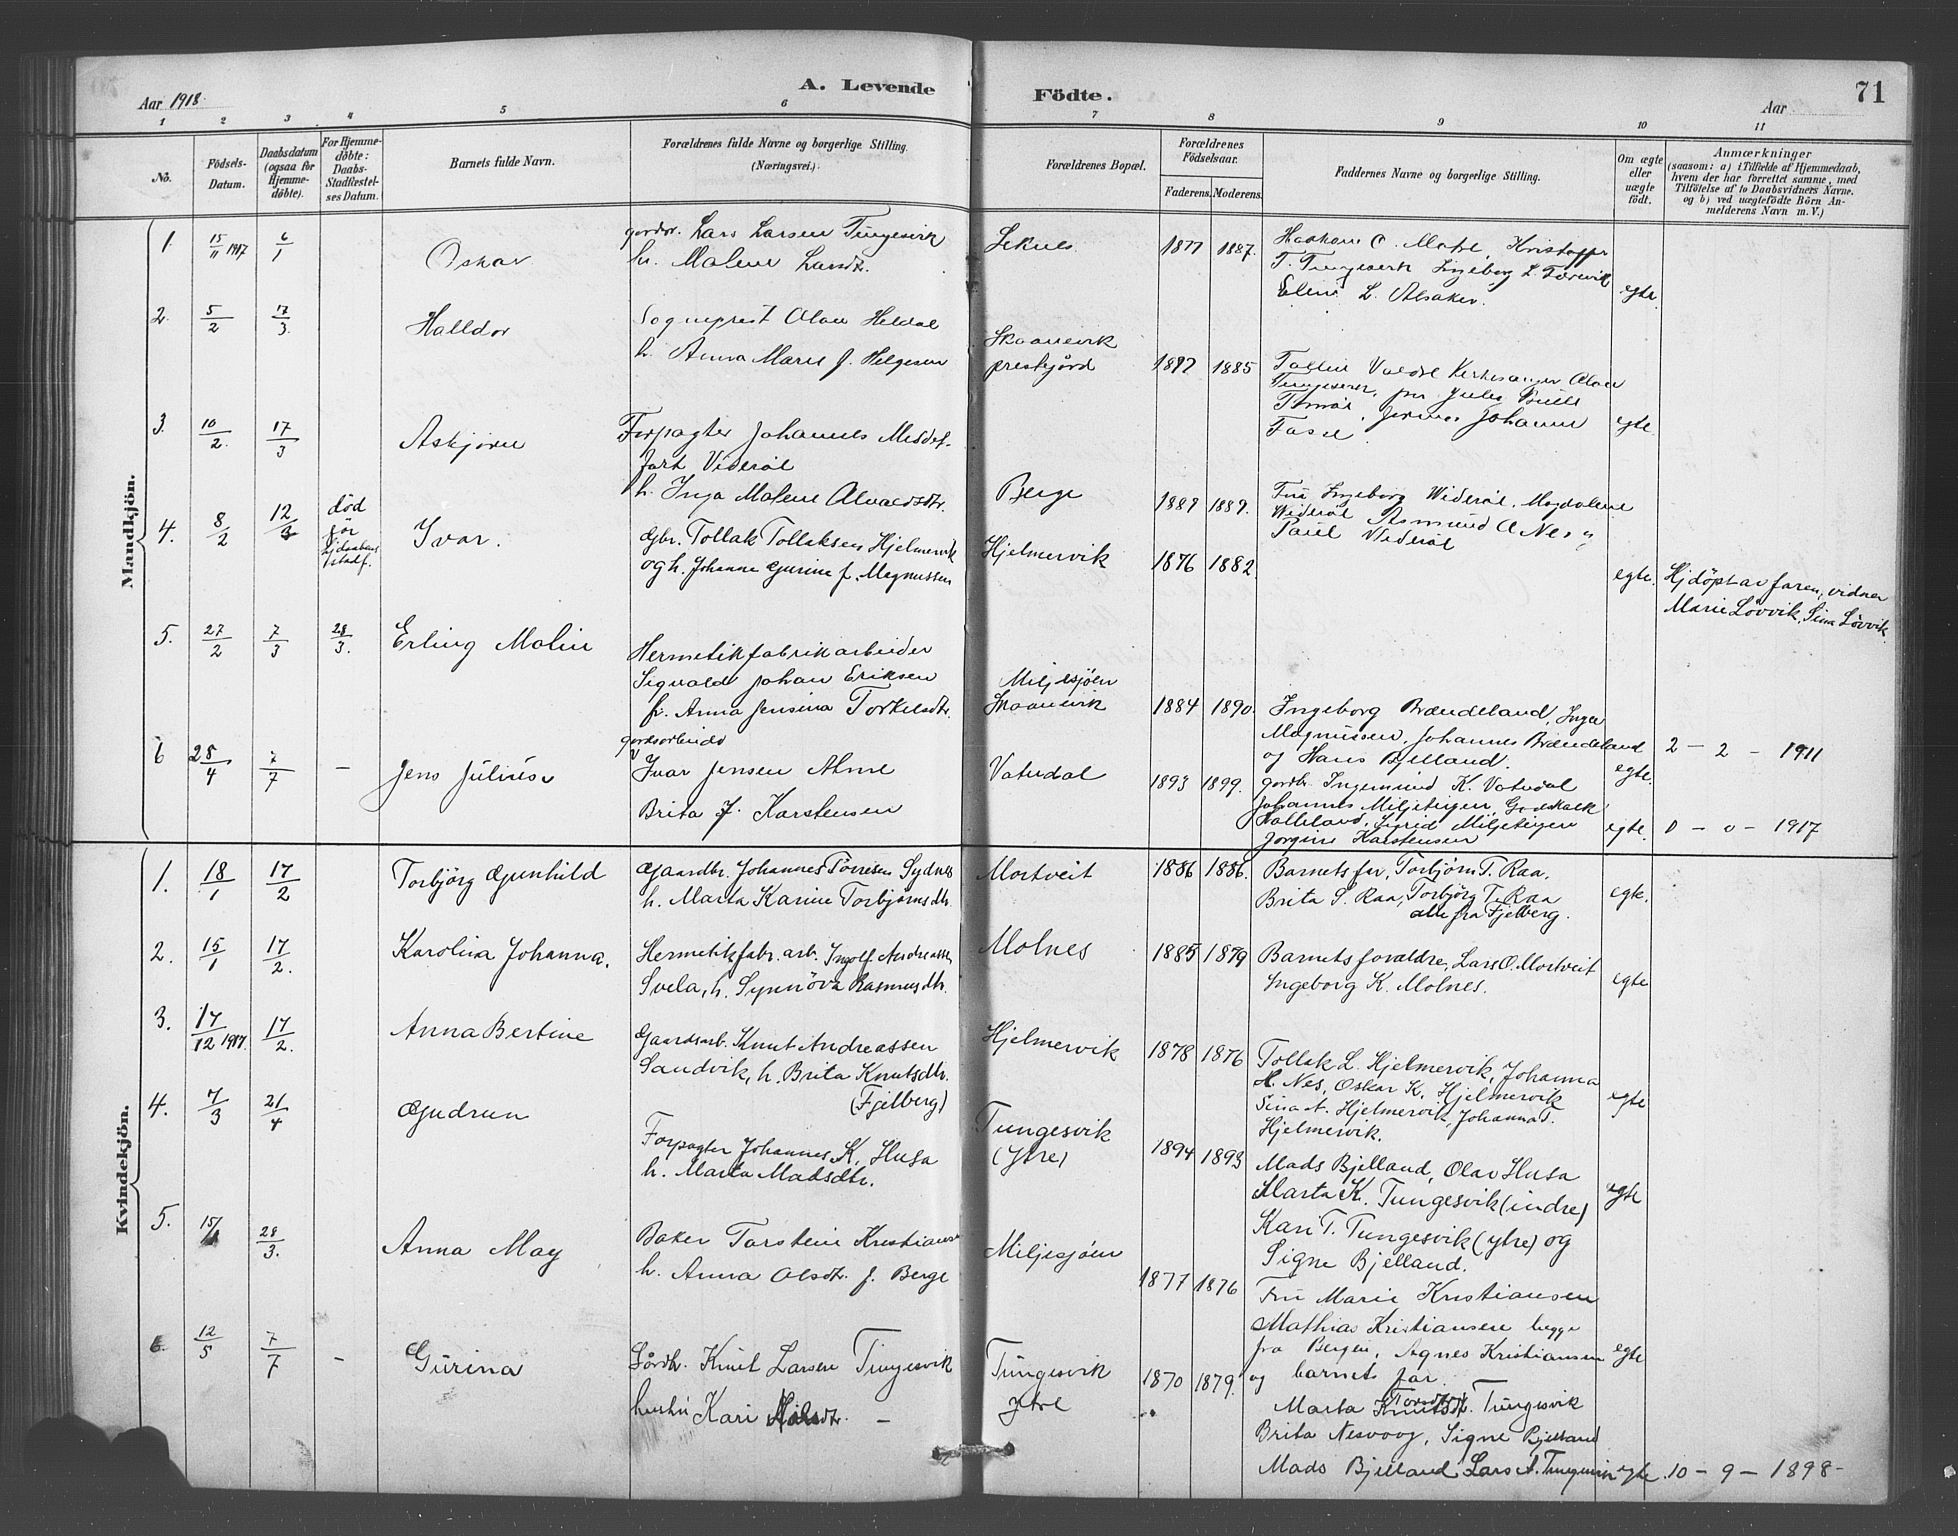 Aar 1918.
A. Levende
Födte.
Aar
71
1 2 3 4 5 6 7 8 9 10 11
No.
Födsels-
Datum.
Daabsdatum
(ogsaa for
Hjemme-
döbte).
For Hjemme-
döbte:
Daabs-
Stadfæstel-
ses Datum.
Barnets fulde Navn.
Forældrenes fulde Navne og borgerlige Stilling.
(Næringsvei.)
Forældrenes Bopæl.
Forældrenes
Födselsaar.
Faderens. Moderens.
Faddernes Navne og borgerlige Stilling.
Om ægte
eller
uægte
födt.
Anmærkninger
(saasom: a) i Tilfælde af Hjemmedaab,
hvem der har forrettet samme, med
Tilföielse af to Daabsvidners Navne,
og b) ved uægtefödte Börn An-
melderens Navn m. V.)
Mandkjön.
1. 15/11 1917 6/1
Oskar
Lars Larsen Tungesvik
h. Malene Larsdtr.
1877 1887.
Tungesvik Ingeborg L.
Eline L. Alsaker.
egte
2. 5/2 17/3
Halldor
Sogneprest Olav Heldal
h. Anna Marie f. Helgesen
Skaanevik
prestegård
1885
egte.
3. 10/2. 17/3
Askjörn
Forpagter Johannes
Videröl
h. Inga Malene
Berge
1889.
Fru Ingeborg Wideröl. Magdalene
Wideröl Asmund A. Nes
Paul Videröl
4. 8/2 12/3
död
för
Ivar.
Gbr. Tollak Tollaksen Hjelmervik
og h. Johanne Gurine f. Magnussen
Hjelmervik
1876 1882.
egte.
Hjdöpt av faren, vidner
Marie Lövvik, Sina Lövvik
5. 27/2 7/3 28/3.
Erling Malin
Hermetikfabrikarbeider
Sigvald Johan Eriksen
h. Anna Jensina Torkelsdtr.
Miljesjöen
Skaanevik
1884 1890.
Ingeborg Brændeland, Inga
Magnussen, Johannes Brændeland
og Hans Bjelland.
egte.
2 - 2 - 1911
6 28/4 7/7 -
Jens Julius
gardsarbeider
Ivar Jensen Alme
Brita f. Karstensen
Vatndal
1893 1899.
gardbr. Ingemund K. Vatndal
Johannes Miljeteigen, Godskalk
Halleland, Sigrid Miljeteigen
Jorgine Karstensen
egte.
0 - 0 - 1917
Kvindekjön.
1. 18/1 17/2
Torbjörg Gunhild
Gaardbr. Johannes Törresen Sydnes
h. Marta Karine Torbjörnsdtr.
Mortveit
1886 1886.
Barnets far, Torbjörn T. Raa,
Brita S. Raa, Torbjörg T. Raa
alle fra Fjelberg.
egte.
2. 15/1 17/2.
Karolina Johanna.
Hermetikfabr. arb. Ingolf Andreassen
Svela, h. Synnöva Rasmusdtr.
Molnes
1885 1879
Barnets forældre, Lars O. Mortveit
Ingeborg K. Molnes.
egte
3. 17/12 1917. 17/2.
Anna Bertine
Gaardsarb. Knut Andreassen
Sandvik, h. Brita Knutsdtr.
(Fjelberg)
Hjelmervik
1878 1876
Tollak L. Hjelmervik, Johanna
H. Nes, Oskar K. Hjelmervik
Sina A. Hjelmervik, Johanna T.
Hjelmervik.
egte
4. 7/3 21/4
Gudrun
Forpagter Johannes K. Husa
h. Marta Madsdtr.
Tungesvik
(ytre)
1894 1893
Mads Bjelland, Olav Husa
Marta K. Tungesvik (indre)
Kari T. Tungesvik (ytre) og
Signe Bjelland.
egte
5. 28/3.
Anna May
Baker Torstein Kristiansen
h. Anna Olsdtr. f. Berge
Miljesjöen
1877 1876
Fru Marie Kristiansen
Mathias Kristiansen begge
fra Bergen, Agnes Kristiansen
og barnets far.
egte
6. 12/5 7/7 -
Gurina
Gårdbr. Knut Larsen Tungesvik
hustru Kari -
Tungesvik
ytre
1870 1879.
Marta Torsdtr. Tungesvik
Brita Nesvoog, Signe Bjelland
Mads Bjelland Lars A. Tungesvik
egte
10 - 9 - 1898-